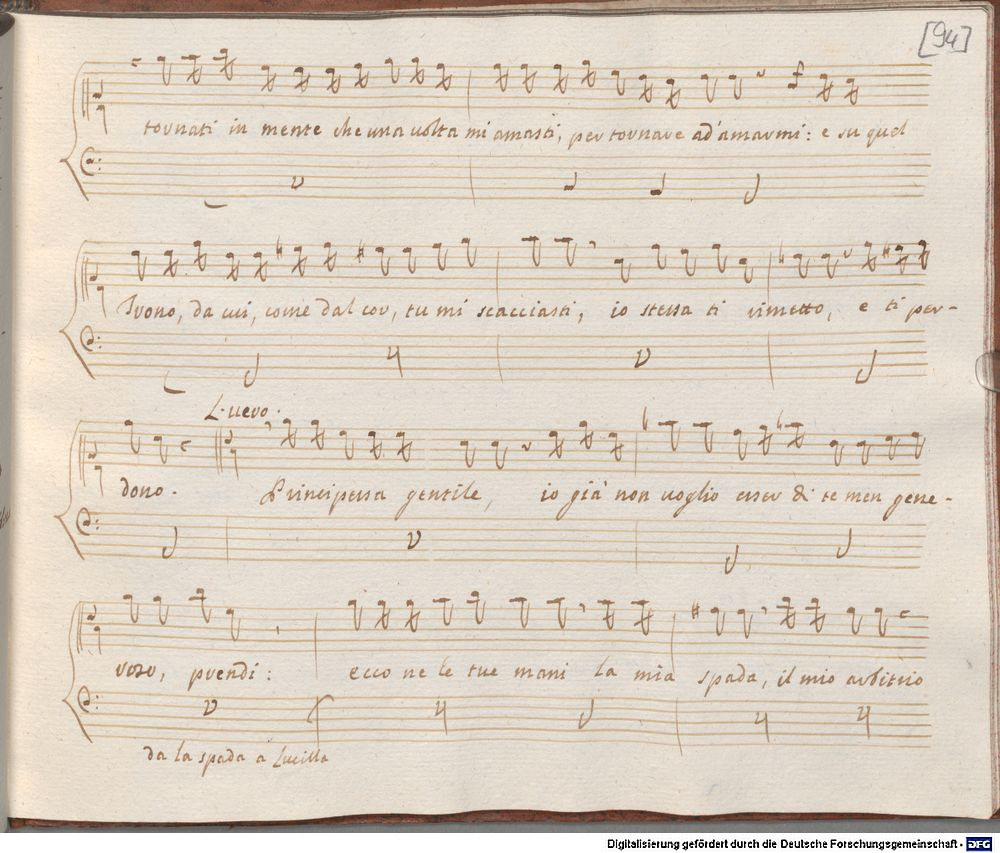 [94]
tornati in mente che una volta mi amasti, per tornare ad' amarmi: e su quel
Trono, da cui, come dal cor, tu mi scacciasti, io stessa ti rimetto, e ti per-
L. vero.
dono. Principessa gentile, io già non voglio esser di te men gene-
roso, prendi: ecco ne le tue mani la mia spada, il mio arbitrio
da la spada a Lucilla
Digitalisierung gefördert durch die Deutsche Forschungsgemeinschaft - DFG